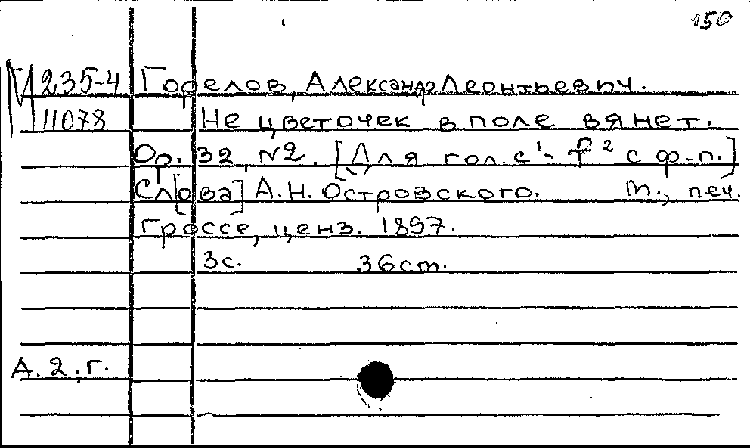 150
М 235-4 Горелов, Александр Леонтьевич.
11078 Не цветочек в поле вянет.
Ор. 32, N2. [Для гол. с¹- f² с ф-п.]
Сл[ова] А.Н. Островского. М., печ.
Гроссе, ценз. 1897.
3с. 36ст.
А.2.г.